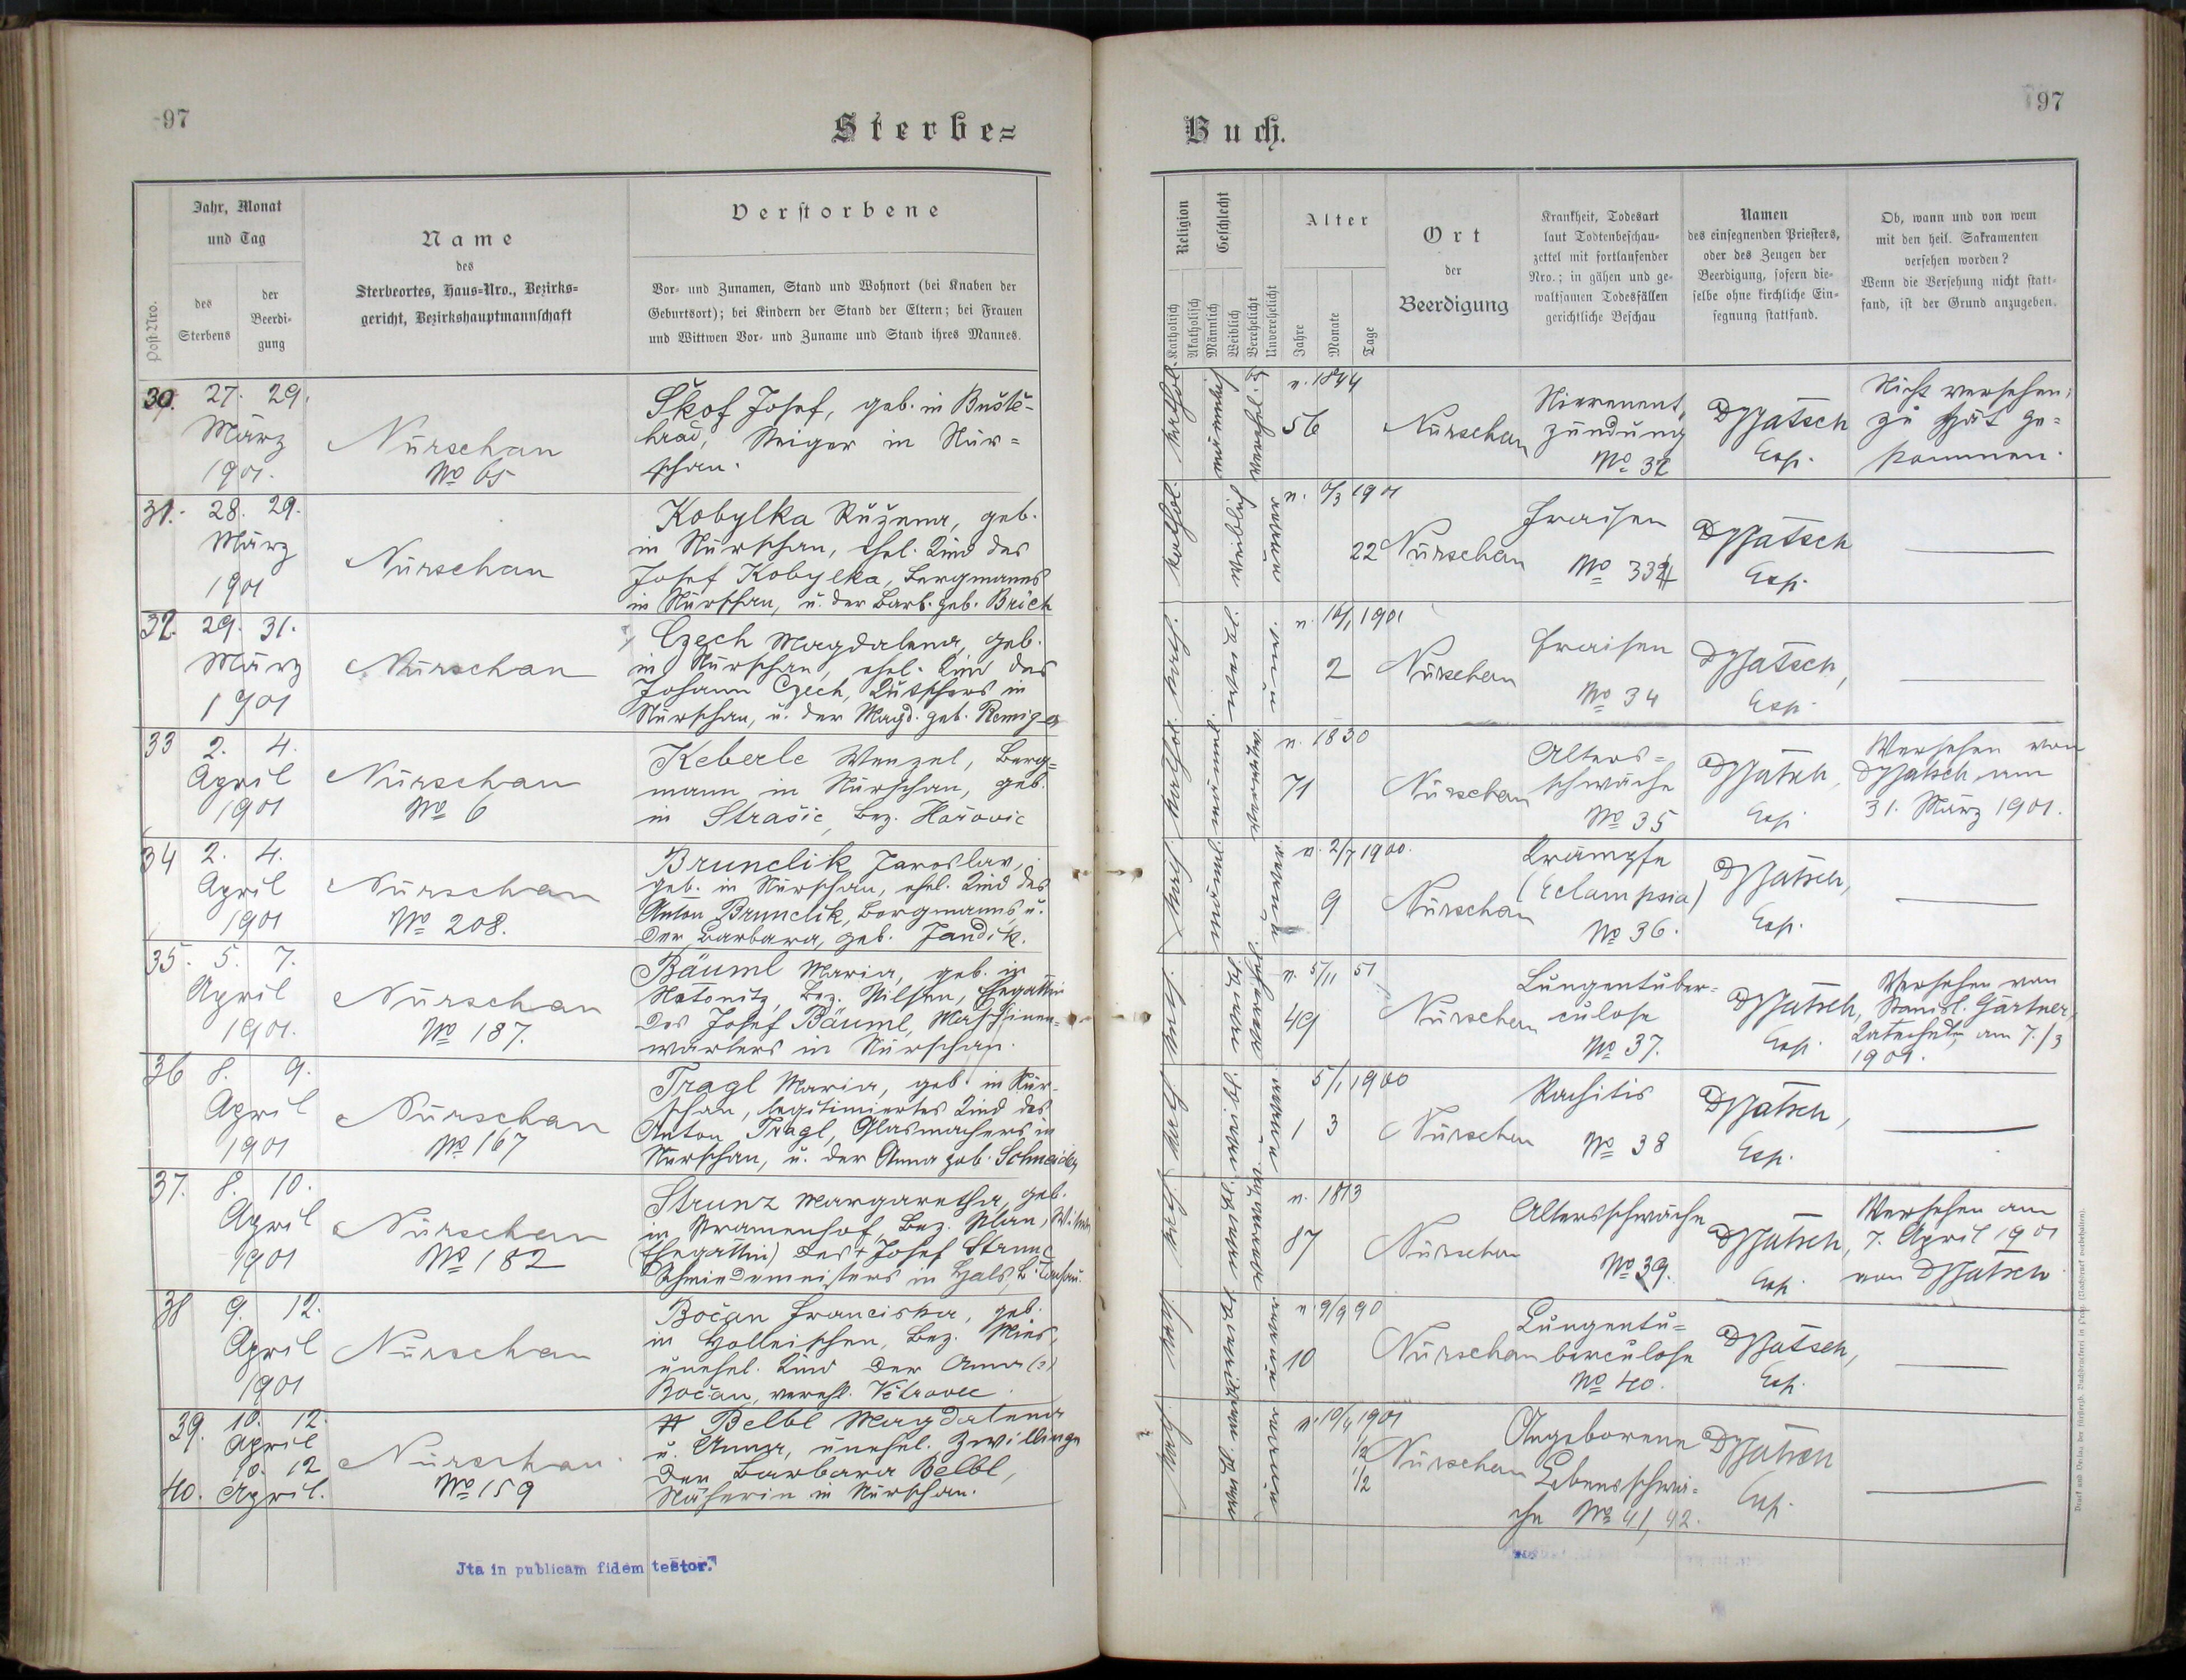 97
Sterbe=
Post-Nro.
Jahr, Monat
und Tag
des
Sterbens
der
Beerdi-
gung
Name
des
Sterbeortes, Haus-Nro., Bezirks=
gericht, Bezirkshauptmannschaft
Verstorbene
Vor- und Zunamen, Stand und Wohnort (bei Knaben der
Geburtsort); bei Kindern der Stand der Eltern; bei Frauen
und Wittwen Vor- und Zuname und Stand ihres Mannes.
30. 27. 29.
März
1901.
Nürschan
No 65
Škof Josef, geb. in Buště-
hrad, Steiger in Nür=
schan.
31. 28. 29.
März
1901
Nürschan
Kobylka Růžena, geb.
in Nürschan, ehel. Kind des
Josef Kobylka, Bergmanns
in Nürschan, u. der Barb. geb. Brich
32. 29. 31.
März
1901
Nürschan
Czech Magdalena, geb.
in Nürschan, ehel. Kind des
Johann Czech, Kutschers in
Nürschan, u. der Magd. geb. Remiger
33 2. 4.
April
1901
Nürschan
No 6
Keberle Wenzel, Berg=
mann in Nürschan, geb.
in Strašic, Bez. Hořovic
34 2. 4.
April
1901
Nürschan
No 208.
Brunclik Jaroslav,
geb. in Nürschan, ehel. Kind des
Anton Brunclik, Bergmanns, u.
der Barbara, geb. Jandik.
35. 5. 7.
April
1901.
Nürschan
No 187.
Bäuml Maria, geb. in
Kotonitz, Bez. Pilsen, Ehegattin
des Josef Bäuml, Maschinen=
wärters in Nürschan.
36 8. 9.
April
1901
Nürschan
No 167
Tragl Maria, geb. in Nür-
schan, legitimiertes Kind des
Anton Tragl, Glasmachers in
Nürschan, u. der Anna geb. Schneider
37. 8. 10.
April
1901
Nürschan
No 182
Strunz Margaretha, geb.
in Bez. Plan,
(Ehegattin) des + Josef Strunz
Schmiedemeisters in Hals, B. Tachau.
38 9. 12.
April
1901
Nürschan
Bočan Franciska, geb.
in Holleischen, Bez. Mies,
unehel. Kind der Anna (?)
Bočan, verehl. Větrovec.
39. 10. 12.
April
10. 12
40. April.
Nürschan.
No 159
Belbl Magdalena
u. Anna, unehel. Zwillinge
der Barbara Belbl,
Näherin in Nürschan.
Jta in publicam fidem testor.
97
Buch.
Religion
Katholisch
Akatholisch
Geschlecht
Männlich
Weiblich
Verehelicht
Unverehelicht
Alter
Jahre
Monate
Tage
Ort
der
Beerdigung
Krankheit, Todesart
laut Todtenbeschau-
zettel mit fortlaufender
Nro.; in gähen und ge-
waltsamen Todesfällen
gerichtliche Beschau
Namen
des einsegnenden Priesters,
oder des Zeugen der
Beerdigung, sofern die-
selbe ohne kirchliche Ein-
segnung stattfand.
Ob, wann und von wem
mit den heil. Sakramenten
versehen worden?
Wenn die Versehung nicht statt-
fand, ist der Grund anzugeben.
kathol. männlich verehel.
n. 1844
56
Nürschan
Nierenent,
zündung
No 32
Exp.
Nicht versehen;
zu spät ge=
kommen.
kathol. weiblich unver
n. 6/3 1901
22 Nürschan
Fraisen
No 33
Exp.
kath. weibl. unv.
n. 16/1 1901
2 Nürschan
Fraisen
No 34
Exp.
kathol. männl. verwitw.
n. 1830
71
Nürschan
Alters=
schwäche
No 35
Exp.
Versehen von
am
31. März 1901.
kath. männl. unver
n. 2/7 1900.
9 Nürschan
Krämpfe
(Eclampsia)
No 36.
Exp.
kath. weibl. verehel.
n. 5/11 51
49
Nürschan
Lungentuber=
culose
No 37.
Exp.
Versehen von
Stanisl. Gärtner,
Katechet, am 7./3
1901.
kath. weibl. unver
5/1 1900
1 3
Nürschan
Rachitis
No 38
Exp.
kath. weibl. verwitw.
n. 1813
87
Nürschan
Altersschwäche
No 39.
Exp.
Versehen am
7. April 1901
von
kath. weibl. unver
n. 9/9 90
10
Nürschan
Lungentu=
berculose
No 40.
Exp.
kath. weibl. unver
n. 10/4 1901
1/2
1/2
Nürschan
Angeborene
Lebensschwä=
che No 41, 42.
Exp.